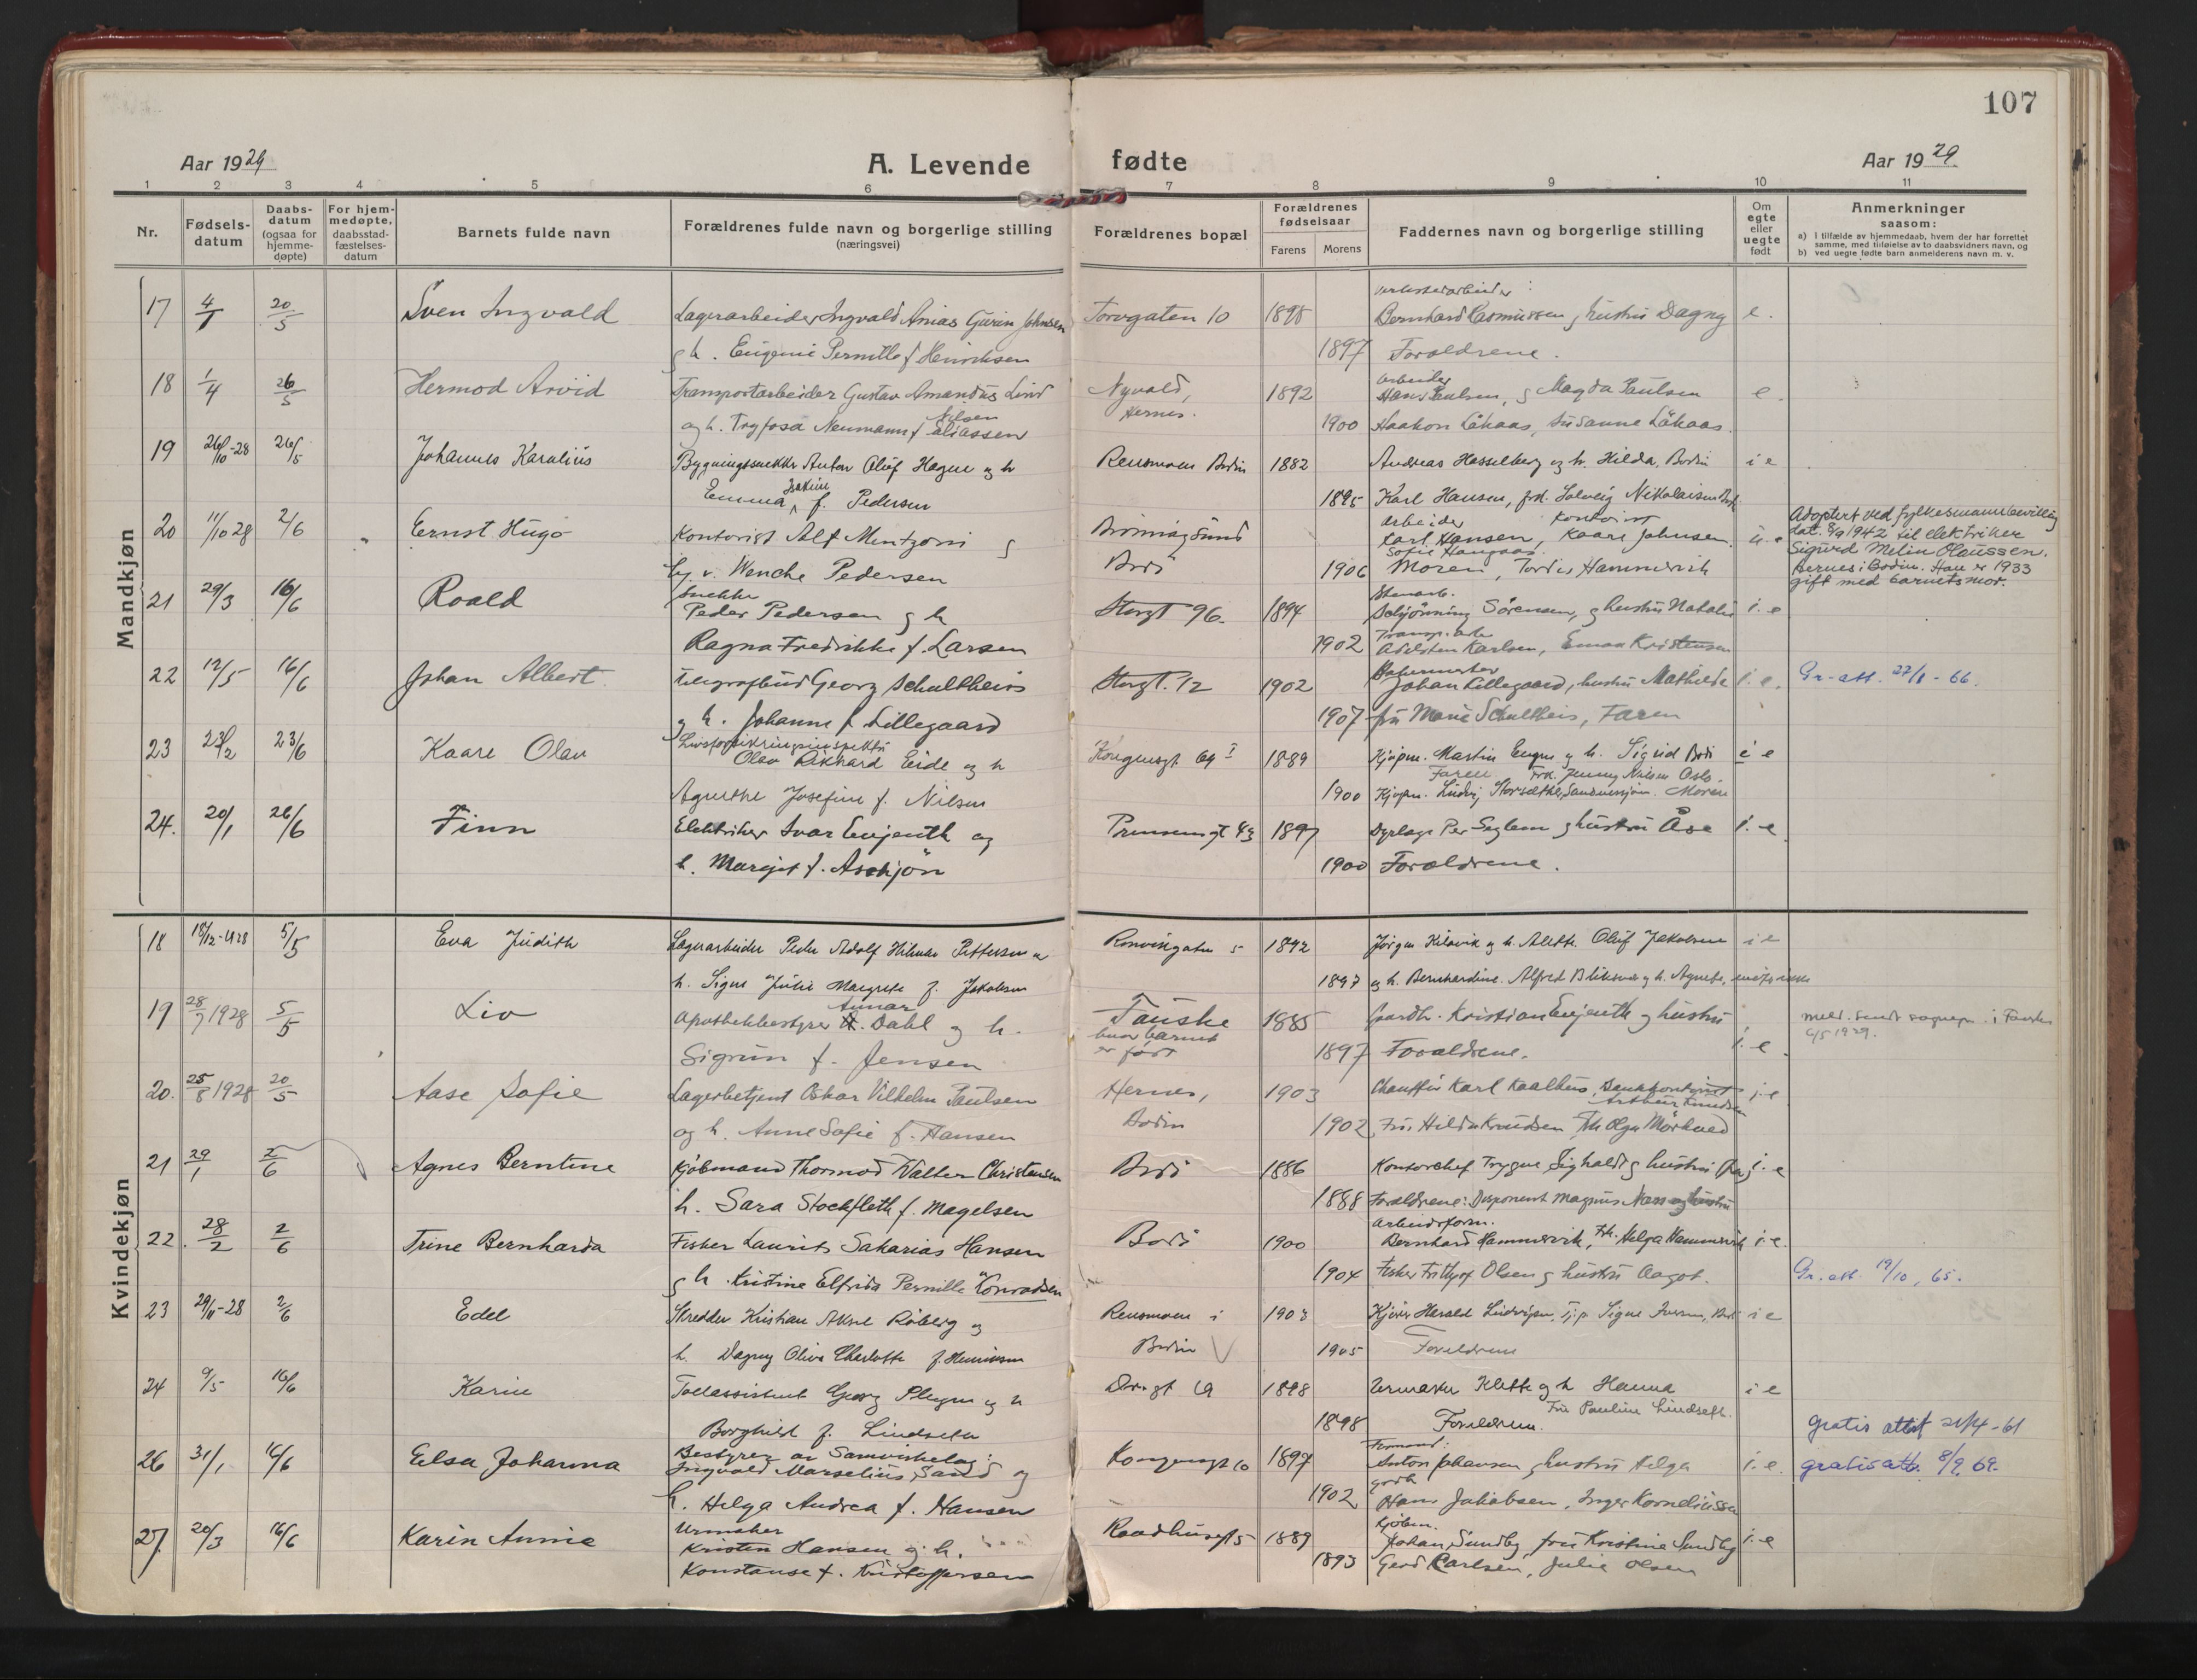 107
Aar 1929
A. Levende fødte
Aar 1929
1 2 3 4 5 6 7 8 9 10 11
Nr.
Fødsels-
datum
Daabs-
datum
(ogsaa for
hjemme-
døpte)
For hjem-
medøpte,
daabsstad-
fæstelses-
datum
Barnets fulde navn
Forældrenes fulde navn og borgerlige stilling
(næringsvei)
Forældrenes bopæl
Forældrenes
fødselsaar
Farens Morens
Faddernes navn og borgerlige stilling
Om
egte
eller
uegte
født
Anmerkninger
saasom:
a) I tilfælde av hjemmedaab, hvem der har forrettet
samme, med tilføielse av to daabsvidners navn, og
b) ved uegte fødte barn anmelderens navn m. v.
Mandkjøn
17 4/1 20/5 Sven Ingvald Lagerarbeider Ingvald Anias Johnsen Torvgaten 10 1898 Bernhard Rasmussen g hustru Dagny e.
g h. Eugenie Pernille f Henriksen 1897 Foreldrene.
arbeider
18 1/4 26/5 Hermod Arvid Transportarbeider Gustav Amandus Lind Nyvold, 1892 Hans Paulsen, g Magda Paulsen e.
Hernes.
Nilsen
og h. Tryfosa Neumann f Eliassen 1900 Haakon Låkaas, Susanne Låkaas.
19 26/10-28 26/5 Johannes Karelius Bygningssnekker Anton Oluf Hagen og h Rensmoen Bodin 1882 Andreas Hasselberg og h. Hilda, Bodin i e
Emma f. Pedersen 1895 Karl Hansen, frk. Solveig Nikolaisen
arbeider kontorist
20 11/10 28 2/6 Ernst Hugo Kontorist Alf Mentzoni g Brönnöysund Karl Hansen, Kaare Johnsen. u. e
Sofie Haugaas.
v. Wenche Pedersen Bodö 1906 Moren, Tordis Hammervik
Adoptert ved fylkesmannbevilling
dat. 8/9 1942 til elektriker
Sigurd Melin Olaussen.
Hernes i Bodin. Han er 1933
gift med barnets mor.
21 29/3 16/6 Roald Snekker
Peder Pedersen g h Storgt 96. 1894 Schjönning Sörensen, g hustru Natalie i. e
Ragna Fredrikke f. Larsen 1902 Adelsten Karlsen, Emma Kristensen
22 12/5 16/6 Johan Albert. Telegrafbud Georg Schultheis Storgt. 12 1902 Johan Lillegaard, hustru Mathilde i. e. Gr-att. 27/1 - 66.
g h. Johanne f Lillegaard 1907 fru Marie Schultheis, Faren
23 23/2 23/6 Kaare Olav Livsforsikringsinspektör
Olav Rikhard Eide og h Kongensgt. 64 I 1889 Kjöpm. Martin Engen og h. Sigrid Bodö i e
Faren Frk. Jenny Nielsen Oslo.
Agnethe Josefine f. Nilsen 1900 Kjöpm. Ludvig Storsæther, Sandnessjöen. Moren
24. 20/1 26/6 Finn Elektriker Ivar Engenth og Prinsensgt 43 1897 Per Seglem g hustru Åse i. e
h. Margit f. Asskjön 1900 Foreldrene.
Kvindekjøn
18 18/12-1928 5/5 Eva Judith Lagerarbeider Peder Adolf Hilmar Pettersen og Rönvikgaten 5 1892 Jörgen Kilavik og h. Alette. Oluf Jakobsen i e
h. Signe Julie Margrete f. Jakobsen 1897 og h. Bernhardine. Alfred Bliksvær og h. Agnete,
19 28/7 1928 5/5 Liv Apothekbestyrer Annar Dahl og h. Fauske 1885 Gaardbr. Kristian Engenth g hustru meld. sendt sognepr. i Fauske
hvor barnet 6/5 1929.
Sigrun f. Jensen er født 1897 Foreldrene. i. e
20. 25/8 1928 20/5 Aase Sofie Lagerbetjent Oskar Vilhelm Paulsen Hernes, 1903 Chauffør Karl Kaalhus, Bankkontorist i. e
Arthur Knudsen
og h. Anne Sofie f. Hansen Bodin 1902 Fru Hilda Knudsen Frk Olga Mörkved
21 29/1 2/6 Agnes Berntine Kjöbmand Thormod Walter Christensen Bodö 1886 Kontorchef Trygve Sighaldt g hustru i. e
h. Sara Stockfleth f. Magelsen 1888 Foreldrene: Disponent Magnus Næss og hustru
Arbeidsform.
22 28/2 2/6 Trine Bernharda Fisker Laurits Sakarias Hansen Bodö 1900 Bernhard Hammervik, Frk. Helga Hammervik i. e.
g h. Kristine Elfrida Pernille Konradsen 1904 Fisker Fritjof Olsen g hustru Aagot. Gr. att. 19/10, 65.
23 29/11-28 2/6 Edel Skredder Kristian Aksel Röberg og Rensmoen i 1903 Kjörer Harald Ludvigsen, Tj.p. Signe Iversen, i e
h. Dagny Oliva Charlotte f. Henriksen Bodin 1905 Foreldrene
24 9/5 16/6 Karin Tollassistent Georg Plegen og h 1898 Urmaker Klette og h Hanna i e
Fru Pauline Lindseth.
Borghild f. Lindseth 1898 Foreldrene. gratis attest 21/4-61
26 31/1 16/6 Elsa Johanna Bestyrer av Samvirkelag: Kongensgt 10 1897 Formand:
Ingvald Marselius Sand og Anton Johansen g hustru Helga i. e. gratis att. 8/9. 69.
h. Helga Andrea f. Hansen 1902 Hans Jakobsen, Inger Korneliussen
27. 20/3 16/6 Karin Annie Urmaker Raadhusgt 5 1889 Kjöbm.
Kristen Hansen g h. Johan Sundby, fru Kristine Sundby i. e
Konstanse f. Kristoffersen 1893 Gerd Carlsen, Julie Olsen